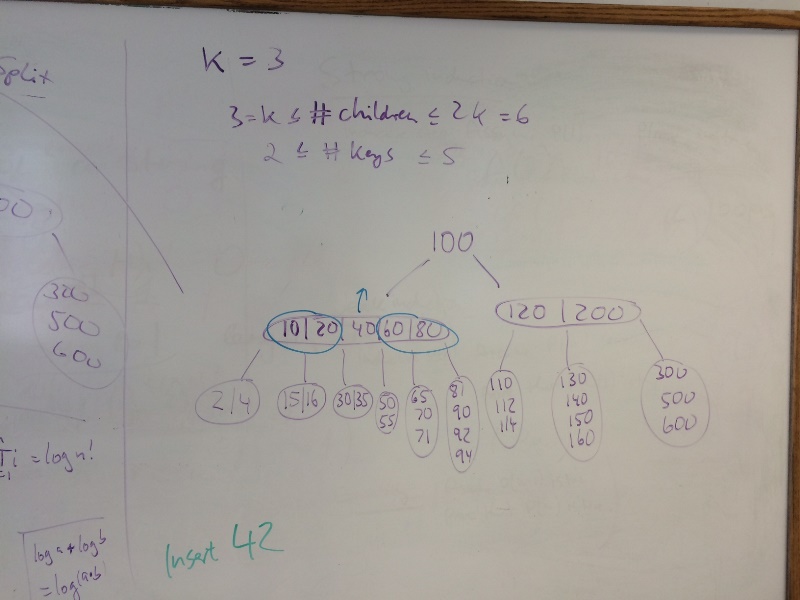 Split
K = 3
3 = k ≤ # children ≤ 2k = 6
2 ≤ # keys ≤ 5
00
100
320
500
600
10 | 20 | 40 | 60 | 80
120 | 200
2 | 4
15 | 16
30 | 35
50
55
65
70
71
81
90
92
94
110
112
114
130
140
150
160
300
500
600
i = log n!
Insert 42
log a + log b
= log(a*b)